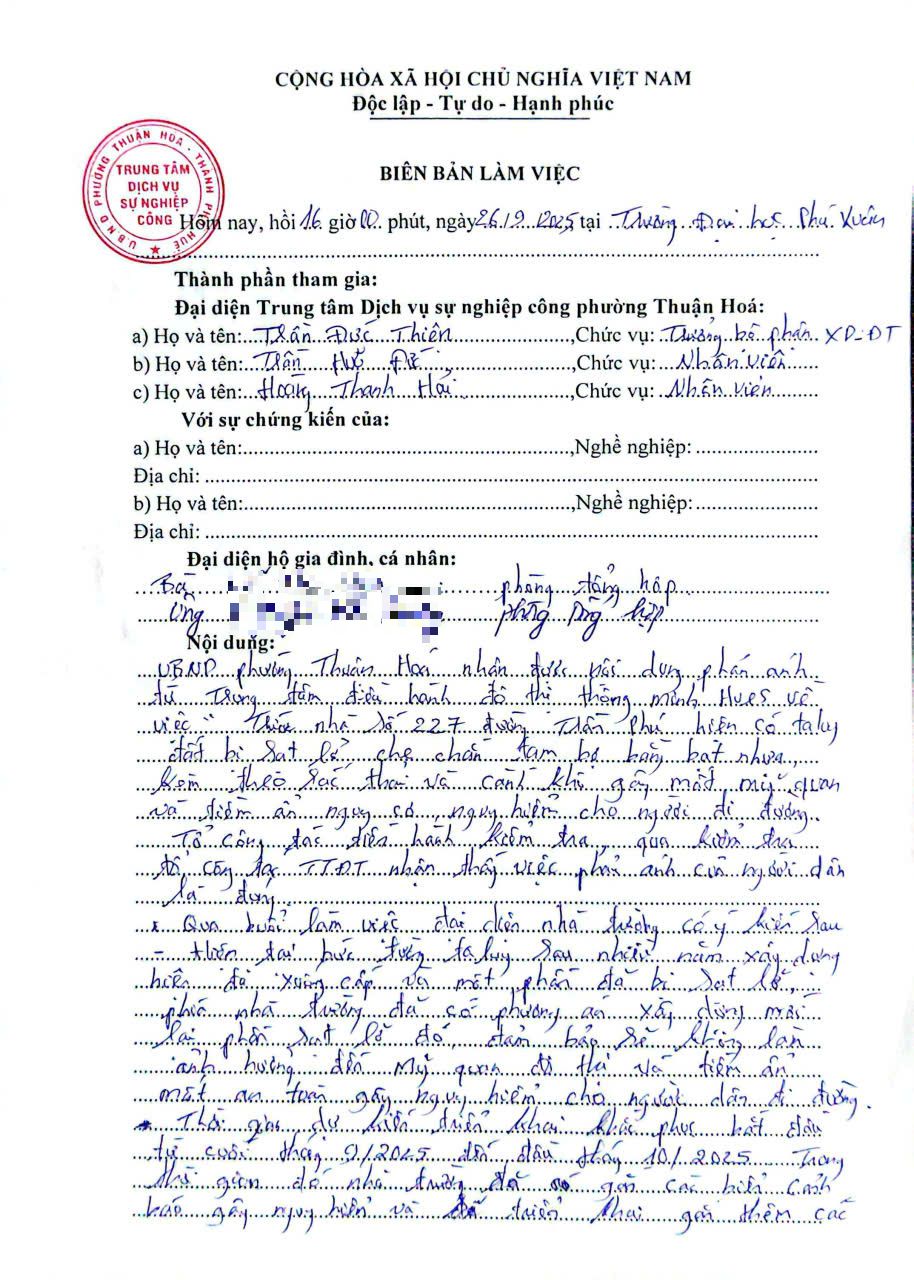 CỘNG HÒA XÃ HỘI CHỦ NGHĨA VIỆT NAM
Độc lập - Tự do - Hạnh phúc
BIÊN BẢN LÀM VIỆC
U.B.N.D PHƯỜNG THUẬN HOÁ - THÀNH PHỐ HUẾ
TRUNG TÂM
DỊCH VỤ
SỰ NGHIỆP
CÔNG
Hôm nay, hồi 16 giờ 00 phút, ngày 26/9/2025 tại Trường Đại học Phú Xuân
Thành phần tham gia:
Đại diện Trung tâm Dịch vụ sự nghiệp công phường Thuận Hoá:
a) Họ và tên: Trần Đức Thiên, Chức vụ: Trưởng bộ phận XD-ĐT
b) Họ và tên: Trần Hữu, Chức vụ: Nhân viên
c) Họ và tên: Hoàng Thanh Hải, Chức vụ: Nhân viên
Với sự chứng kiến của:
a) Họ và tên:, Nghề nghiệp:
Địa chỉ:
b) Họ và tên:, Nghề nghiệp:
Địa chỉ:
Đại diện hộ gia đình, cá nhân:
Bà phòng tổng hợp
Ông phòng Tổng hợp
Nội dung:
UBND phường Thuận Hoá nhận được nội dung phản ánh
từ Trung tâm điều hành đô thị thông minh HueS về
việc "Trước nhà số 227 đường Trần Phú hiện có taluy
đất bị sạt lở, che chắn tạm bợ bằng bạt nhựa,
kèm theo rác thải và cành khô gây mất mỹ quan
và tiềm ẩn nguy cơ nguy hiểm cho người đi đường.
Tổ công tác tiến hành kiểm tra, qua kiểm tra
tổ công tác TTĐT nhận thấy việc phản ánh của người dân
là đúng.
* Qua buổi làm việc đại diện nhà trường có ý kiến sau
- Hiện tại bức tường taluy sau nhiều năm xây dựng
hiện đã xuống cấp và một phần đã bị sạt lở,
phía nhà trường đã có phương án xây dựng mới
lại phần sạt lở đó, đảm bảo sẽ không làm
ảnh hưởng đến mỹ quan đô thị và tiềm ẩn
mất an toàn gây nguy hiểm cho người dân đi đường.
- Thời gian dự kiến triển khai khắc phục bắt đầu
từ cuối tháng 9/2025 đến đầu tháng 10/2025. Trong
thời gian đó nhà trường đã gắn các biển cảnh
báo gây nguy hiểm và triển khai gắn thêm các